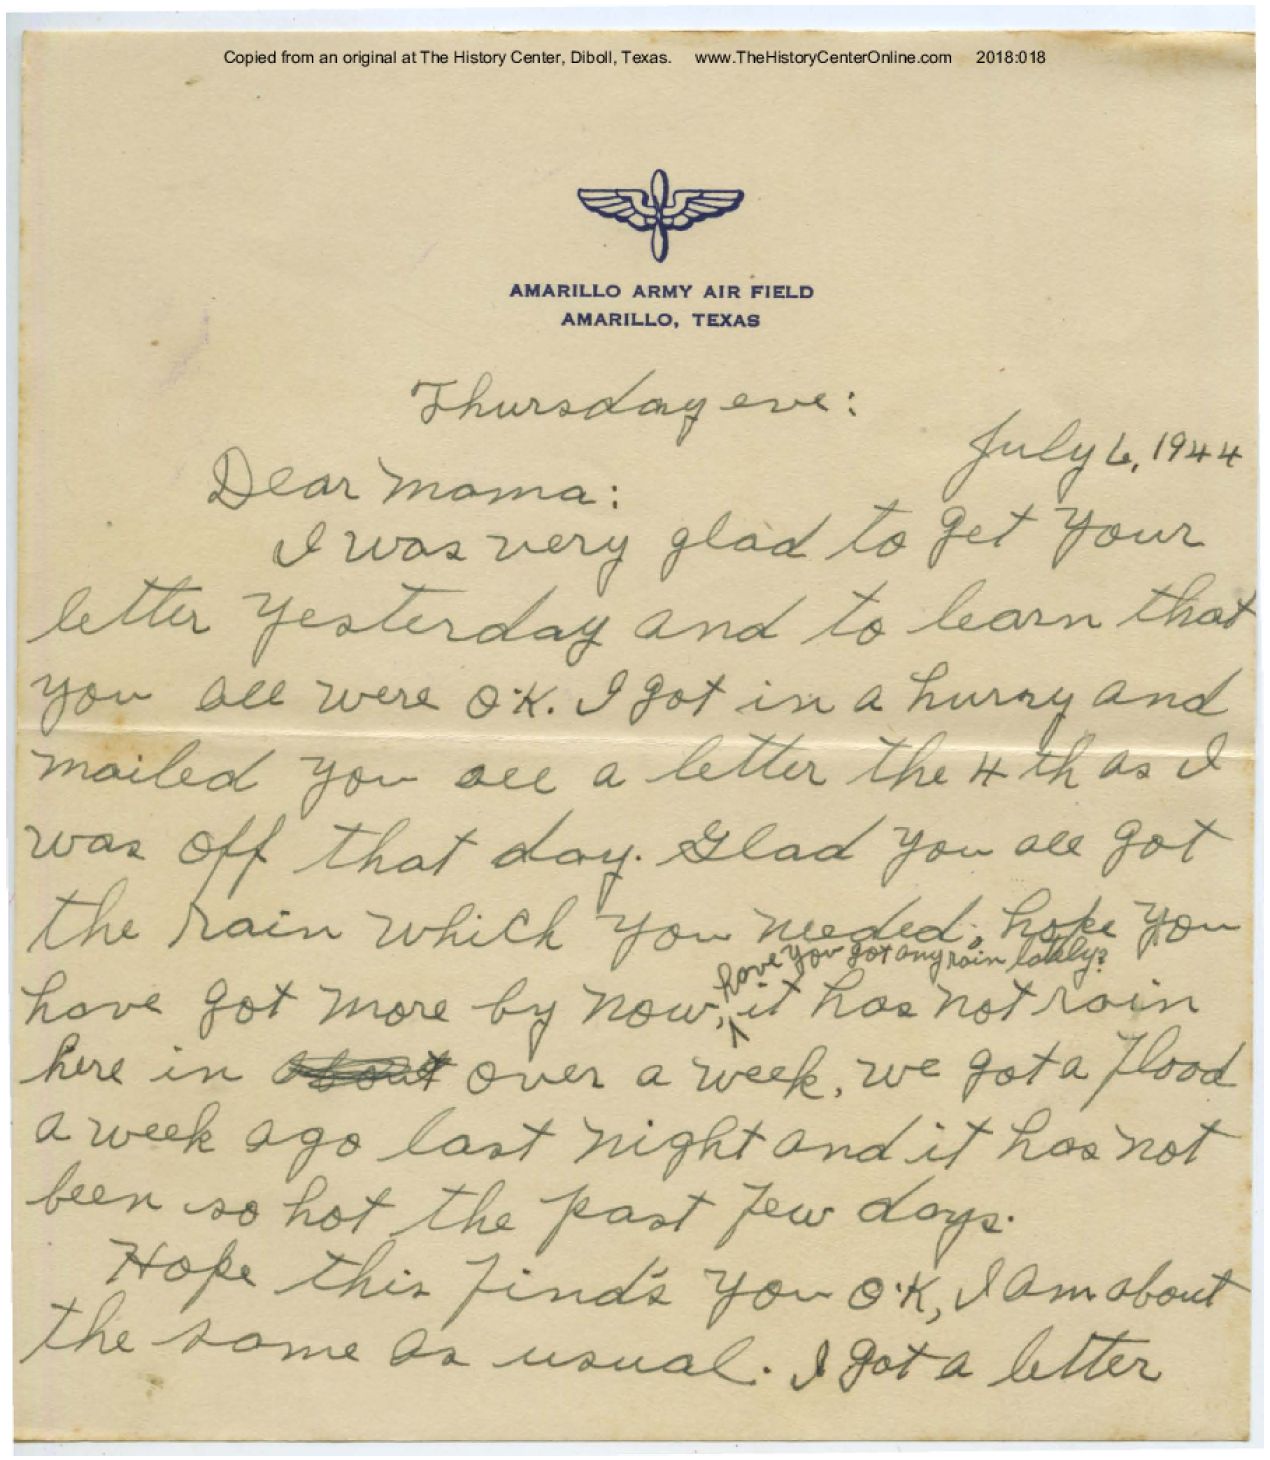 Copied from an original at The History Center, Diboll, Texas. www.TheHistoryCenterOnline.com 2018:018
AMARILLO ARMY AIR FIELD
AMARILLO, TEXAS
Thursday eve:
July 6, 1944
Dear Mama:
I was very glad to get your
letter yesterday and to learn that
you all were O.K. I got in a hurry and
mailed you all a letter the 4th as I
was off that day. Glad you all got
the rain which you needed, hope you
have you got any rain lately?
have got more by now, it has not rain
here in about over a week, we got a flood
a week ago last night and it has not
been so hot the past few days.
Hope this find's you O.K, I am about
the same as usual. I got a letter